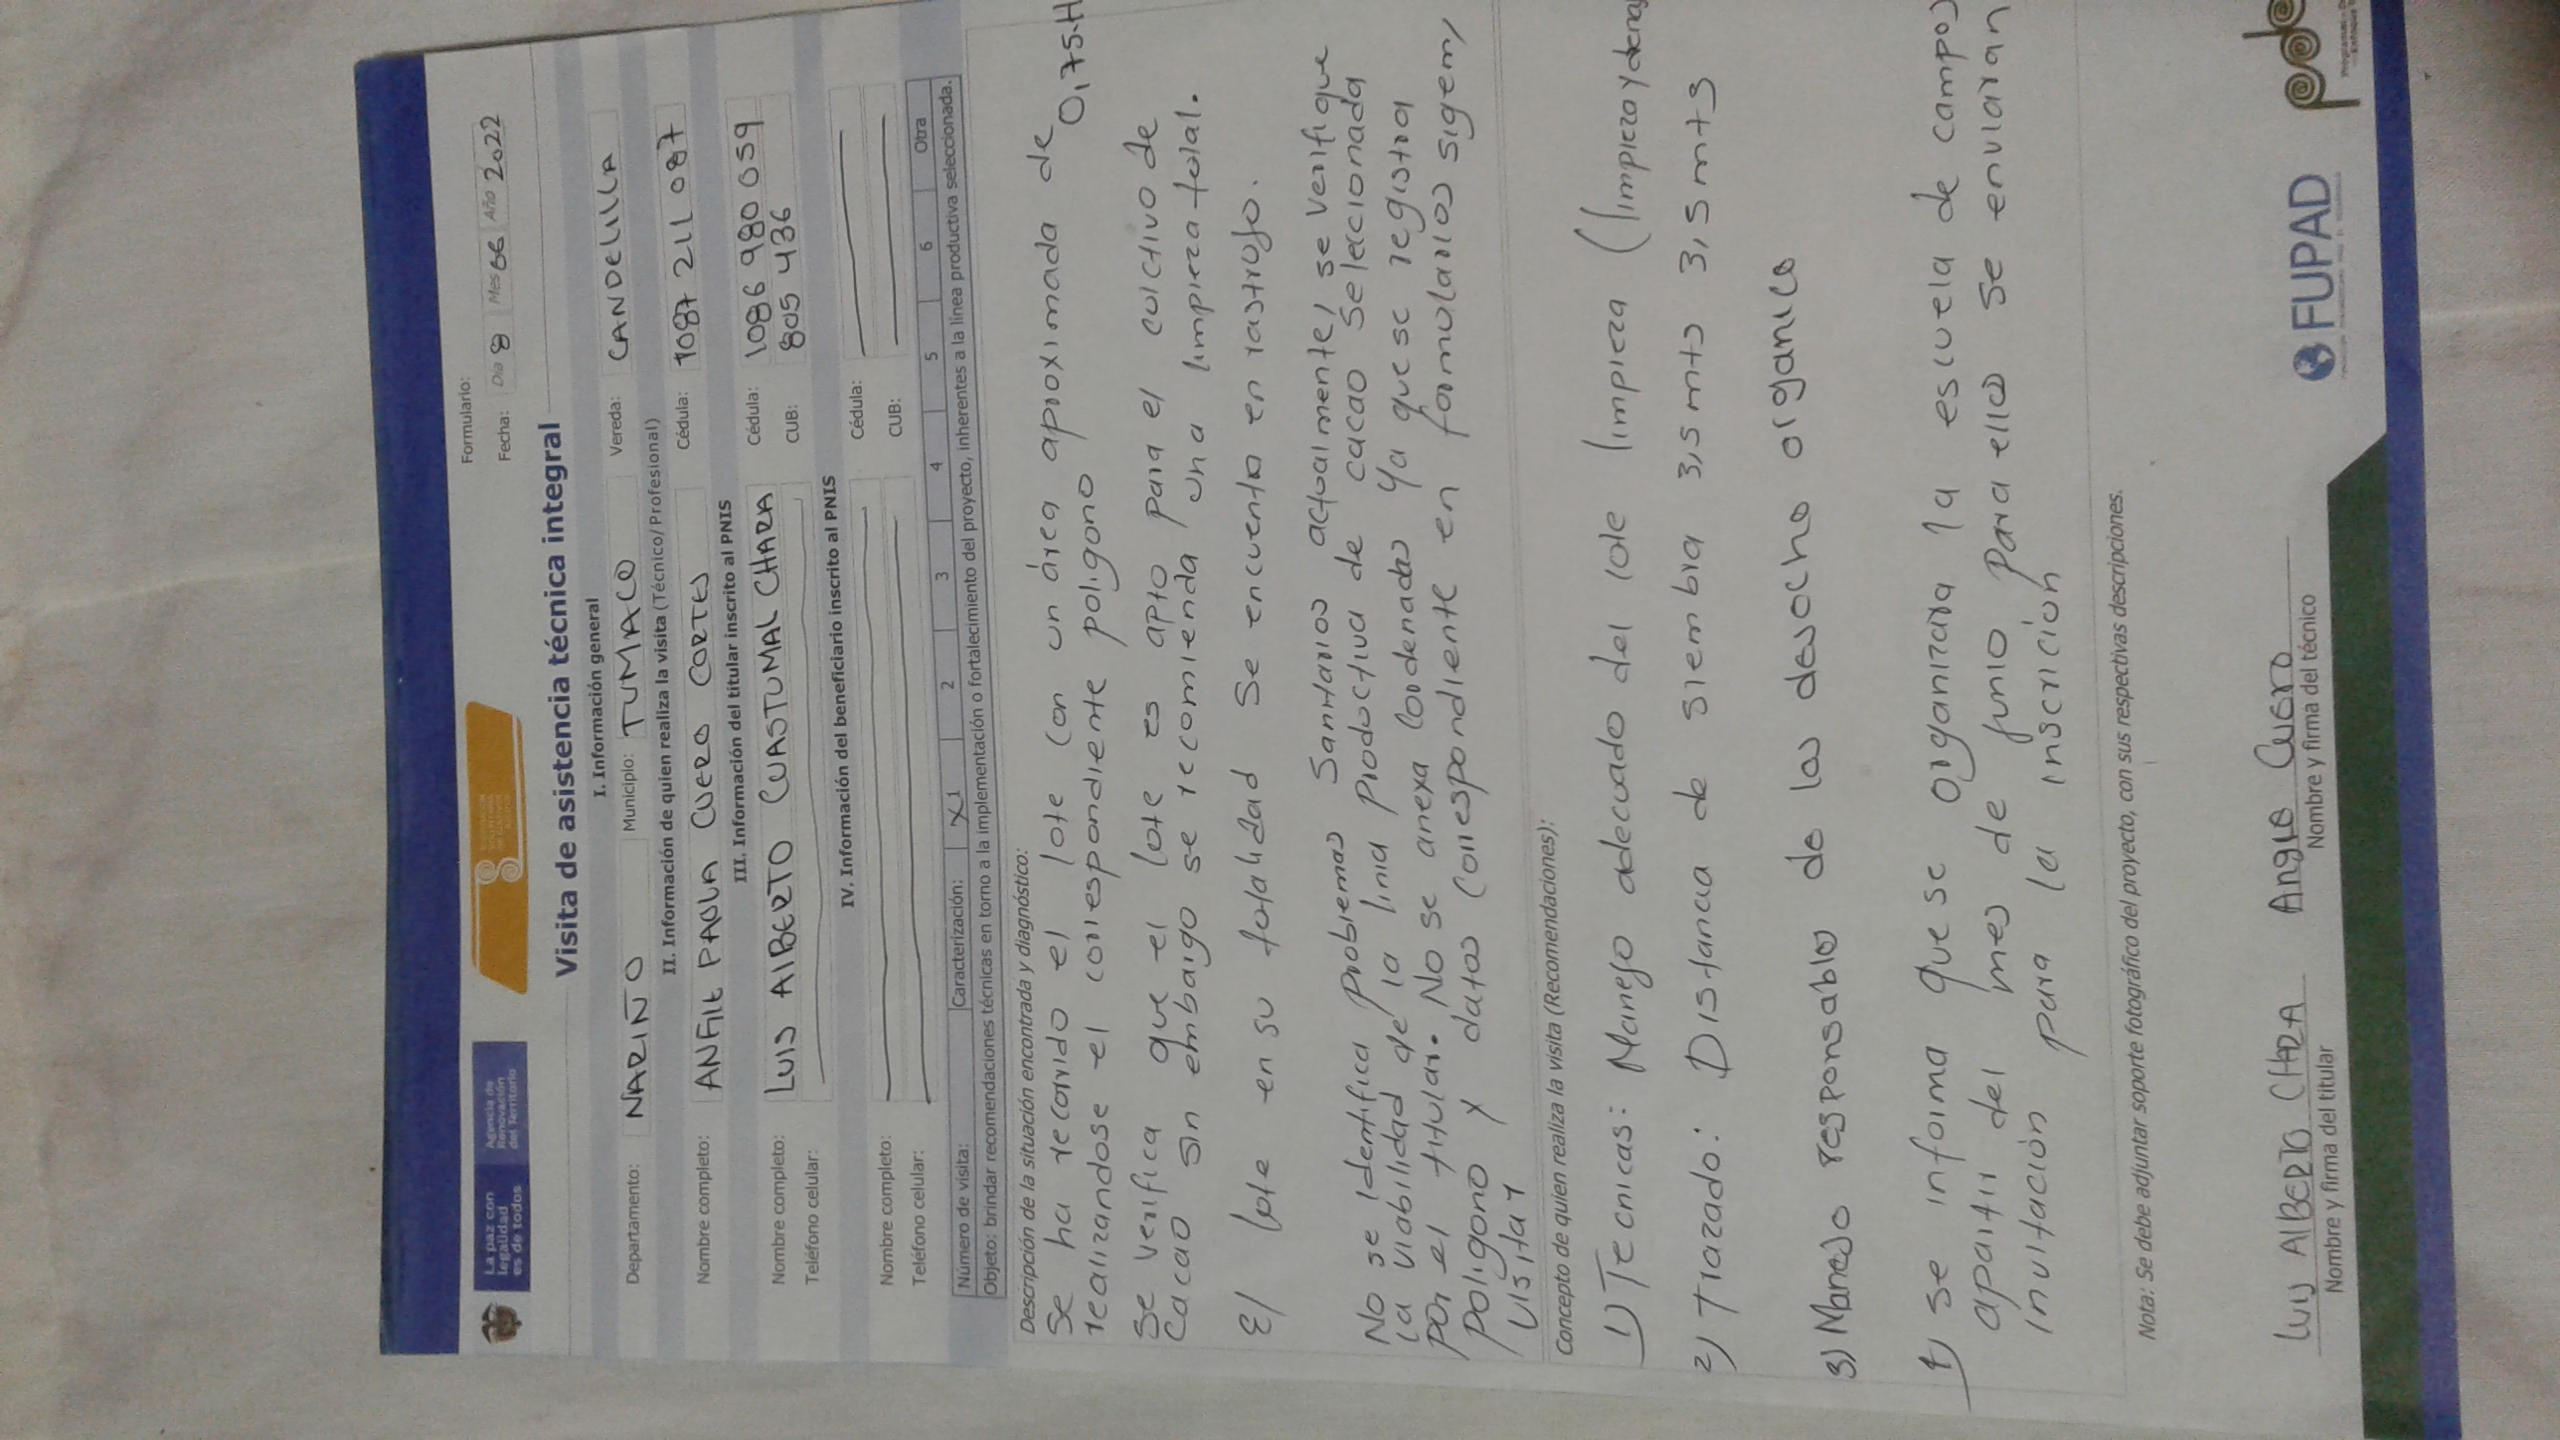 La paz con
legalidad
es de todos
Agencia de
Renovación
del Territorio
Formulario:
Fecha: Día 8 Mes 06 Año 2022
Visita de asistencia técnica integral
I. Información general
Departamento: NARIÑO Municipio: TUMACO Vereda: CANDELILLA
II. Información de quien realiza la visita (Técnico/Profesional)
Nombre completo: PAOLA CUERO CORTES Cédula: 1087 211 087
III. Información del titular inscrito al PNIS
Nombre completo: LUIS AlBERTO CUASTUMAL CHARA Cédula: 1086 980 059
Teléfono celular: CUB: 805 436
IV. Información del beneficiario inscrito al PNIS
Nombre completo: Cédula:
Teléfono celular: CUB:
Número de visita: Caracterización: X 1 2 3 4 5 6 Otra
Objeto: brindar recomendaciones técnicas en torno a la implementación o fortalecimiento del proyecto, inherentes a la línea productiva seleccionada.
Descripción de la situación encontrada y diagnóstico:
Se ha recorrido el lote con un área aproximada de 0,75.H
realizandose el correspondiente poligono
Se verifica que el lote es apto para el cultivo de
Cacao sin embargo se recomienda una limpieza total.
El lote en su totalidad se encuentra en rastrojo.
No se identifica problemas Sanitarios actualmente, se verifique
la viabilidad de la linia productiva de cacao seleccionada
por el titular. No se anexa Coordenadas Ya que se registra
poligono y datos correspondiente en formularios sigem,
Visita 1
Concepto de quien realiza la visita (Recomendaciones):
1) Tecnicas: Manejo adecuado del lote limpieza (limpieza y drenaj
2) Trazado: Distancia de siembra 3,5 mts 3,5 mts
3) Manejo responsables de los desecho organico
1) se informa que se organizara la escuela de campo
apartir del mes de junio para ello se enviaran
invitación para la inscricion
Nota: Se debe adjuntar soporte fotográfico del proyecto, con sus respectivas descripciones.
LUIS AlBERTO CHARA
Nombre y firma del titular
Cuero
Nombre y firma del técnico
FUPAD